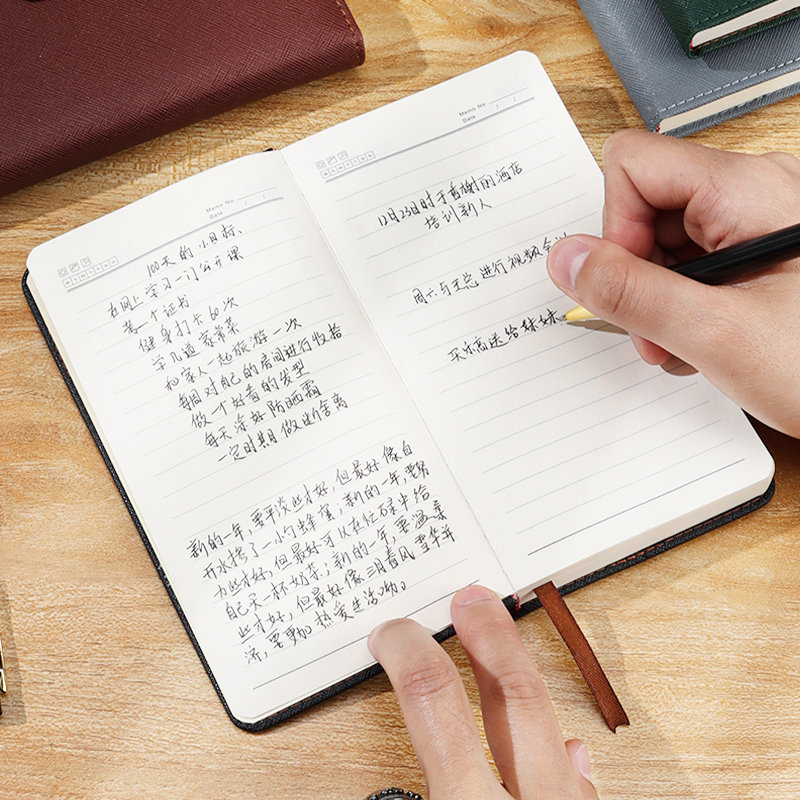 Memo No.
Date / /
100天的小目标
在网上学习一门公开课
考一个证书
健身打卡60次
学几道家常菜
和家人一起旅游一次
每周对自己的房间进行收拾
做一个好看的发型
每天涂好防晒霜
一定时期做断舍离
新的一年,要平淡些才好,但最好像白
开水掺了一小勺蜂蜜;新的一年,要努
力些才好,但最好可以在忙碌中给
自己买一杯奶茶;新的一年,要温柔
些才好,但最好像三月春风
济,要 热爱生活
Memo No.
Date / /
12月23日时于香榭丽酒店
培训新人
周六与王总进行视频会议
买乐高送给妹妹